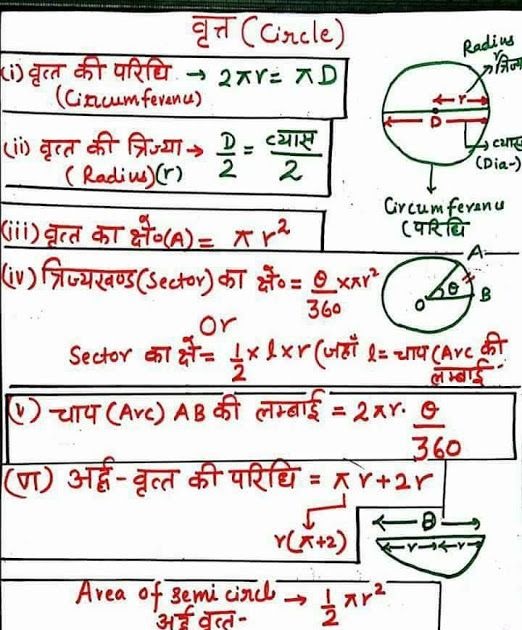 वृत्त (Circle)
Radius
त्रिज्या
(i) वृत्त की परिधि → 2πr = πD
(Circumferenu)
r
D
व्यास
(Dia-)
(ii) वृत्त की त्रिज्या → D/2 = व्यास/2
(Radius)(r)
Circumferenu
(परिधि
(iii) वृत्त का क्षे०(A) = πr²
(iv) त्रिज्यखण्ड(Sector) का क्षे० = θ/360 × πr²
A
O θ B
Or
Sector का क्षे = 1/2 × l × r (जहाँ l = चाप (Arc की
लम्बाई-
(v) चाप (Arc) AB की लम्बाई = 2πr. θ/360
(vi) अर्द्ध-वृत्त की परिधि = πr + 2r
r(π+2)
r r
Area of semi circle → 1/2 πr²
अर्द्ध वृत्त-